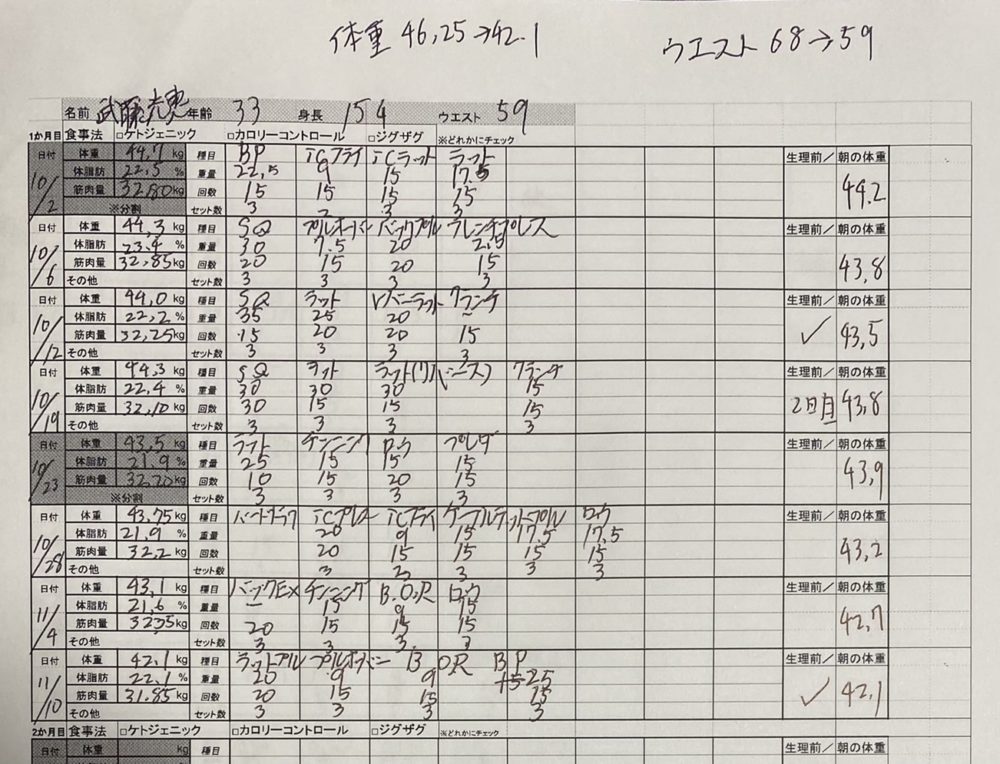 体重 46,25→42.1
ウエスト 68→59
名前 年齢 33 身長 154 ウエスト 59
1か月目 食事法 □ケトジェニック □カロリーコントロール □ジグザグ ※どれかにチェック
日付 体重 44,7 kg 種目 BP ICフライ ICラット ラット 生理前/ 朝の体重
10/2 体脂肪 22,5 % 重量 22,5 9 15 17.5 44.2
筋肉量 32,80kg 回数 15 15 15 15
※分割 セット数 3 3 3 3
日付 体重 44,3 kg 種目 SQ プルオーバー バックプル フレンチプレス 生理前/ 朝の体重
10/6 体脂肪 23.4 % 重量 30 7.5 20 2.5 43,8
筋肉量 32,85kg 回数 20 15 20 15
その他 セット数 3 3 3 3
日付 体重 44,0 kg 種目 SQ ラット リバーラット クランチ 生理前/ 朝の体重
10/12 体脂肪 22,2 % 重量 35 25 20 ー ✓ 43,5
筋肉量 32,25kg 回数 15 20 20 15
その他 セット数 3 3 3 3
日付 体重 44,3 kg 種目 SQ ラット ラット(リバース) クランチ 生理前/ 朝の体重
10/19 体脂肪 22,4 % 重量 30 30 30 15 2日目 43,8
筋肉量 32,10 kg 回数 30 15 15 15
その他 セット数 3 3 3 3
日付 体重 43,5 kg 種目 ラット チンニング ロウ プルダ 生理前/ 朝の体重
10/23 体脂肪 21,9 % 重量 25 15 15 15 43,9
筋肉量 32,20kg 回数 10 15 20 15
※分割 セット数 3 3 3 3
日付 体重 43,75 kg 種目 ICプレス ICフライ ロウ 生理前/ 朝の体重
10/28 体脂肪 21.9 % 重量 20 9 15 17.5 17.5 43,2
筋肉量 32,2 kg 回数 20 15 15 15 15
その他 セット数 3 3 3 3 3
日付 体重 43,1 kg 種目 バックEX チンニング B.O.R ロウ 生理前/ 朝の体重
11/4 体脂肪 21,6 % 重量 ー 15 9 15 42,7
筋肉量 kg 回数 20 15 15 15
その他 セット数 3 3 3 3
日付 体重 42,1 kg 種目 ラットプル プルオーバー B.O.R BP 生理前/ 朝の体重
11/10 体脂肪 22,1 % 重量 20 9 9 25 ✓ 42,1
筋肉量 31.85kg 回数 20 15 15 15
その他 セット数 3 3 3 3
2か月目 食事法 □ケトジェニック □カロリーコントロール □ジグザグ ※どれかにチェック
日付 体重 kg 種目 生理前/ 朝の体重
体脂肪 % 重量